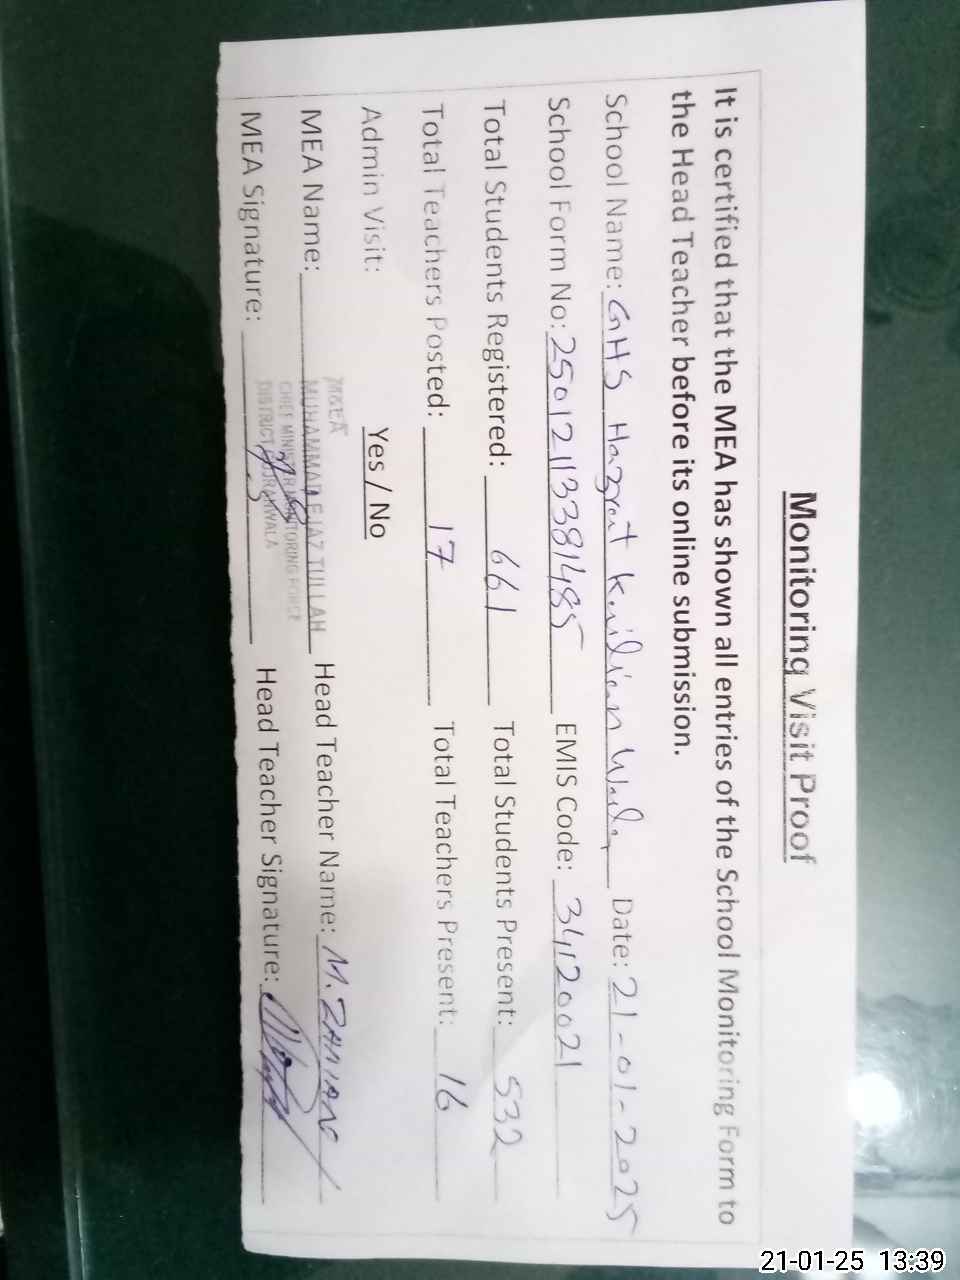 Monitoring Visit Proof
It is certified that the MEA has shown all entries of the School Monitoring Form to
the Head Teacher before its online submission.
School Name: GHS Hazrat Date: 21-01-2025
School Form No: 25012113381485 EMIS Code: 34120021
Total Students Registered: 661 Total Students Present: 532
Total Teachers Posted: 17 Total Teachers Present: 16
Admin Visit: Yes / No
MEA Name: MUHAMMAD Head Teacher Name: M.
CHIEF MINISTER MONITORING FORCE
DISTRICT
MEA Signature: Head Teacher Signature:
21-01-25 13:39